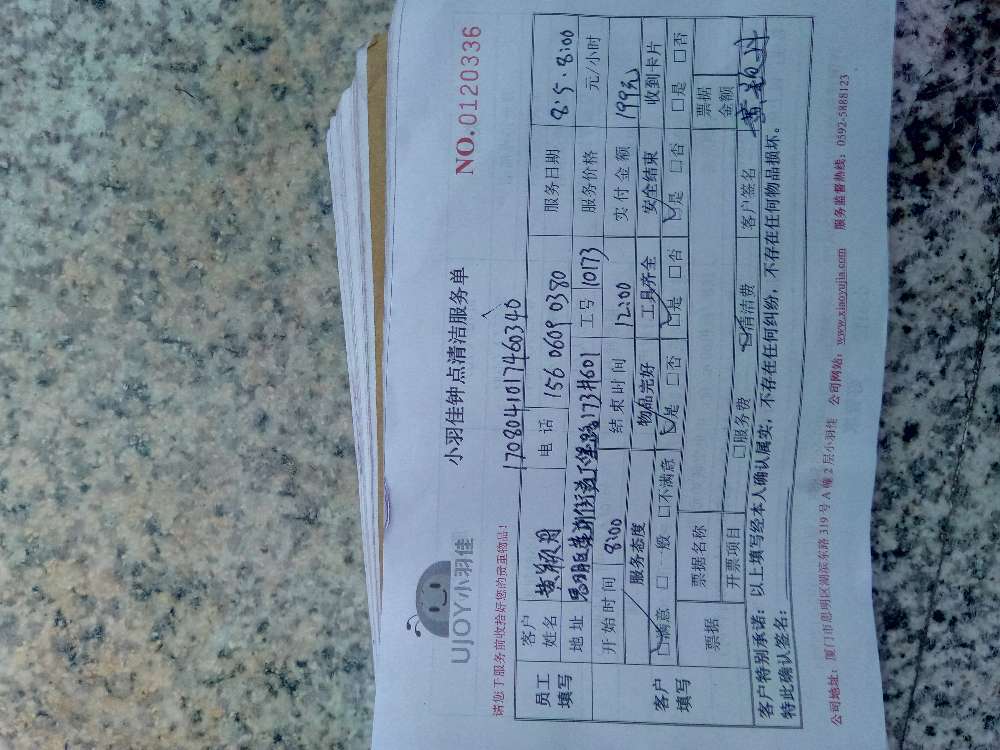 UJOY小羽佳
小羽佳钟点清洁服务单
NO.0120336
请您于服务前收拾好您的贵重物品!
1708041017460340
员工填写
客户姓名 黄颖丹 电话 156 0609 0380 服务日期 8.5.8:00
地址 思明区 173#601 工号 10173 服务价格 元/小时
开始时间 8:00 结束时间 12:00 实付金额 199元
客户填写
服务态度 物品完好 工具齐全 安全结束 收到卡片
☑满意 □一般 □不满意 ☑是 □否 ☑是 □否 ☑是 □否 □是 □否
票据 票据名称 票据金额
开票项目 □服务费 ☑清洁费
客户特别承诺:以上填写经本人确认属实,不存在任何纠纷,不存在任何物品损坏。
特此确认签名: 客户签名 黄颖丹
公司地址:厦门市思明区湖滨东路319号A幢2层小羽佳 公司网站:www.xiaoyujia.com 服务监督热线:0592-5888123